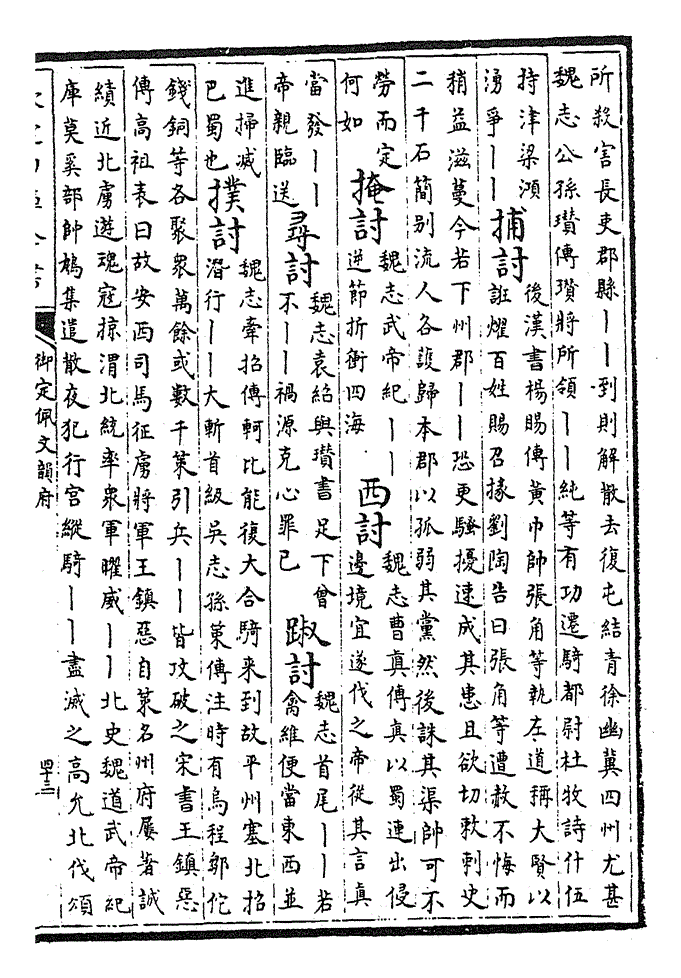 所殺害長吏郡縣丨丨到則解散去復屯結青徐幽冀四州尤甚
魏志公孫瓚傳瓚將所領丨丨純等有功遷騎都尉杜牧詩什伍
持津梁澒
湧爭丨丨
捕討
後漢書楊賜傳黃巾帥張角等執左道稱大賢以
誑燿百姓賜召掾劉陶告曰張角等遭赦不悔而
稍益滋蔓今若下州郡丨丨恐更騷擾速成其患且欲切敕刺史
二千石簡別流人各護歸本郡以孤弱其黨然後誅其渠帥可不
勞而定
何如
掩討
魏志武帝紀丨丨
逆節折衝四海
西討
魏志曹真傳真以蜀連出侵
邊境宜遂伐之帝從其言真
當發丨丨
帝親臨送
尋討
魏志袁紹與瓚書足下曾
不丨丨禍源克心罪己
踧討
魏志首尾丨丨若
禽維便當東西並
進掃滅
巴蜀也
撲討
魏志牽招傳軻比能復大合騎来到故平州塞北招
潛行丨丨大斬首級吳志孫策傳注時有烏程鄒佗
錢銅等各聚衆萬餘或數千策引兵丨丨皆攻破之宋書王鎮惡
傳高祖表曰故安西司馬征虜將軍王鎮惡自策名州府屢著誠
績近北虜遊魂寇掠渭北統率衆軍曜威丨丨北史魏道武帝紀
庫莫奚部帥鳩集遺散夜犯行宫縱騎丨丨盡滅之高允北伐頌
御定佩文韻府
四十三